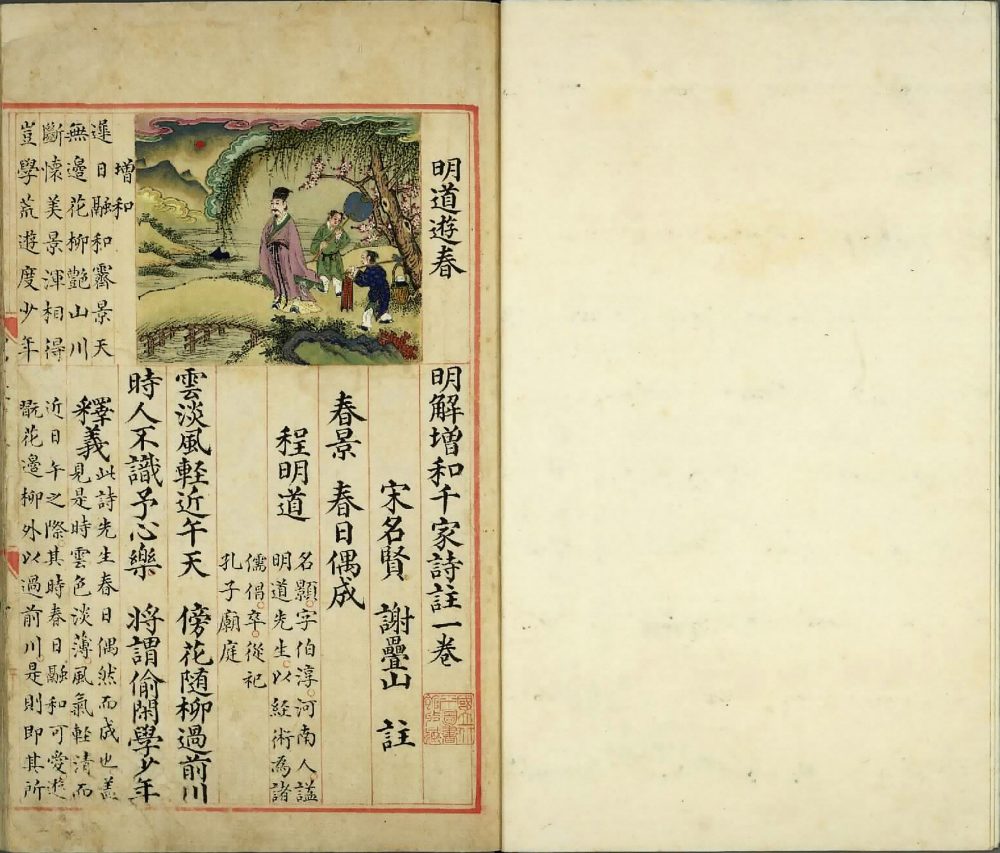 明道遊春
明解增和千家詩註一卷
宋名賢 謝疊山 註
春景 春日偶成
程明道
名顥字伯淳河南人謚
明道先生以経術為諸
儒倡卒從祀
孔子廟庭
雲淡風軽近午天 傍花随柳過前川
時人不識予心樂 将謂偷閑學少年
增和
遲日融和霽景天
無邊花柳艶山川
斷懷美景渾相得
豈學荒遊度少年
釋義
此詩先生春日偶然而成也蓋
見是時雲色淡薄風氣軽清而
近日午之際其時春日融和可愛遊
翫花邊柳外以過前川是則即其所